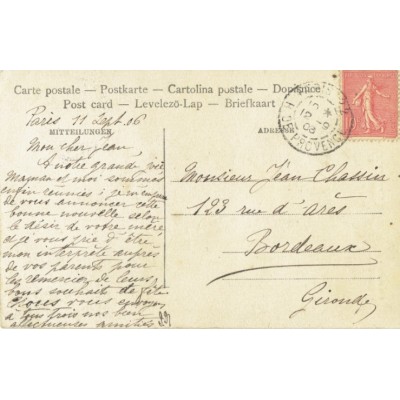 Carte postale – Postkarte – Cartolina postale – Dopisnice
Post card – Levelező-Lap – Briefkaart
Paris 11 Sept. 06
MITTEILUNGEN.
ADRESSE
Mon cher Jean
A notre grande joie
Maman et moi sommes
enfin réunies ; je m'empresse
de vous annoncer cette
bonne nouvelle selon
le désir de votre mère
et je vous prie d'être
mon interprète auprès
de vos parents pour
les remercier de leurs
bons souhaits de fête
Nous vous envoyons
à tous trois nos bien
affectueuses amitiés
Monsieur Jean Chassin
123 rue d'arès
Bordeaux
Gironde
R. DE PROVENCE